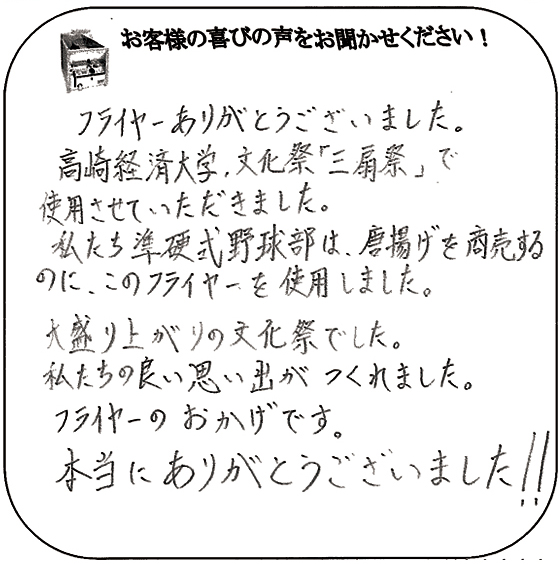 お客様の喜びの声をお聞かせください！
フライヤーありがとうございました。
高崎経済大学，文化祭「三扇祭」で
使用させていただきました。
私たち準硬式野球部は、唐揚げを商売する
のに、このフライヤーを使用しました。
大盛り上がりの文化祭でした。
私たちの良い思い出がつくれました。
フライヤーのおかげです。
本当にありがとうございました!!